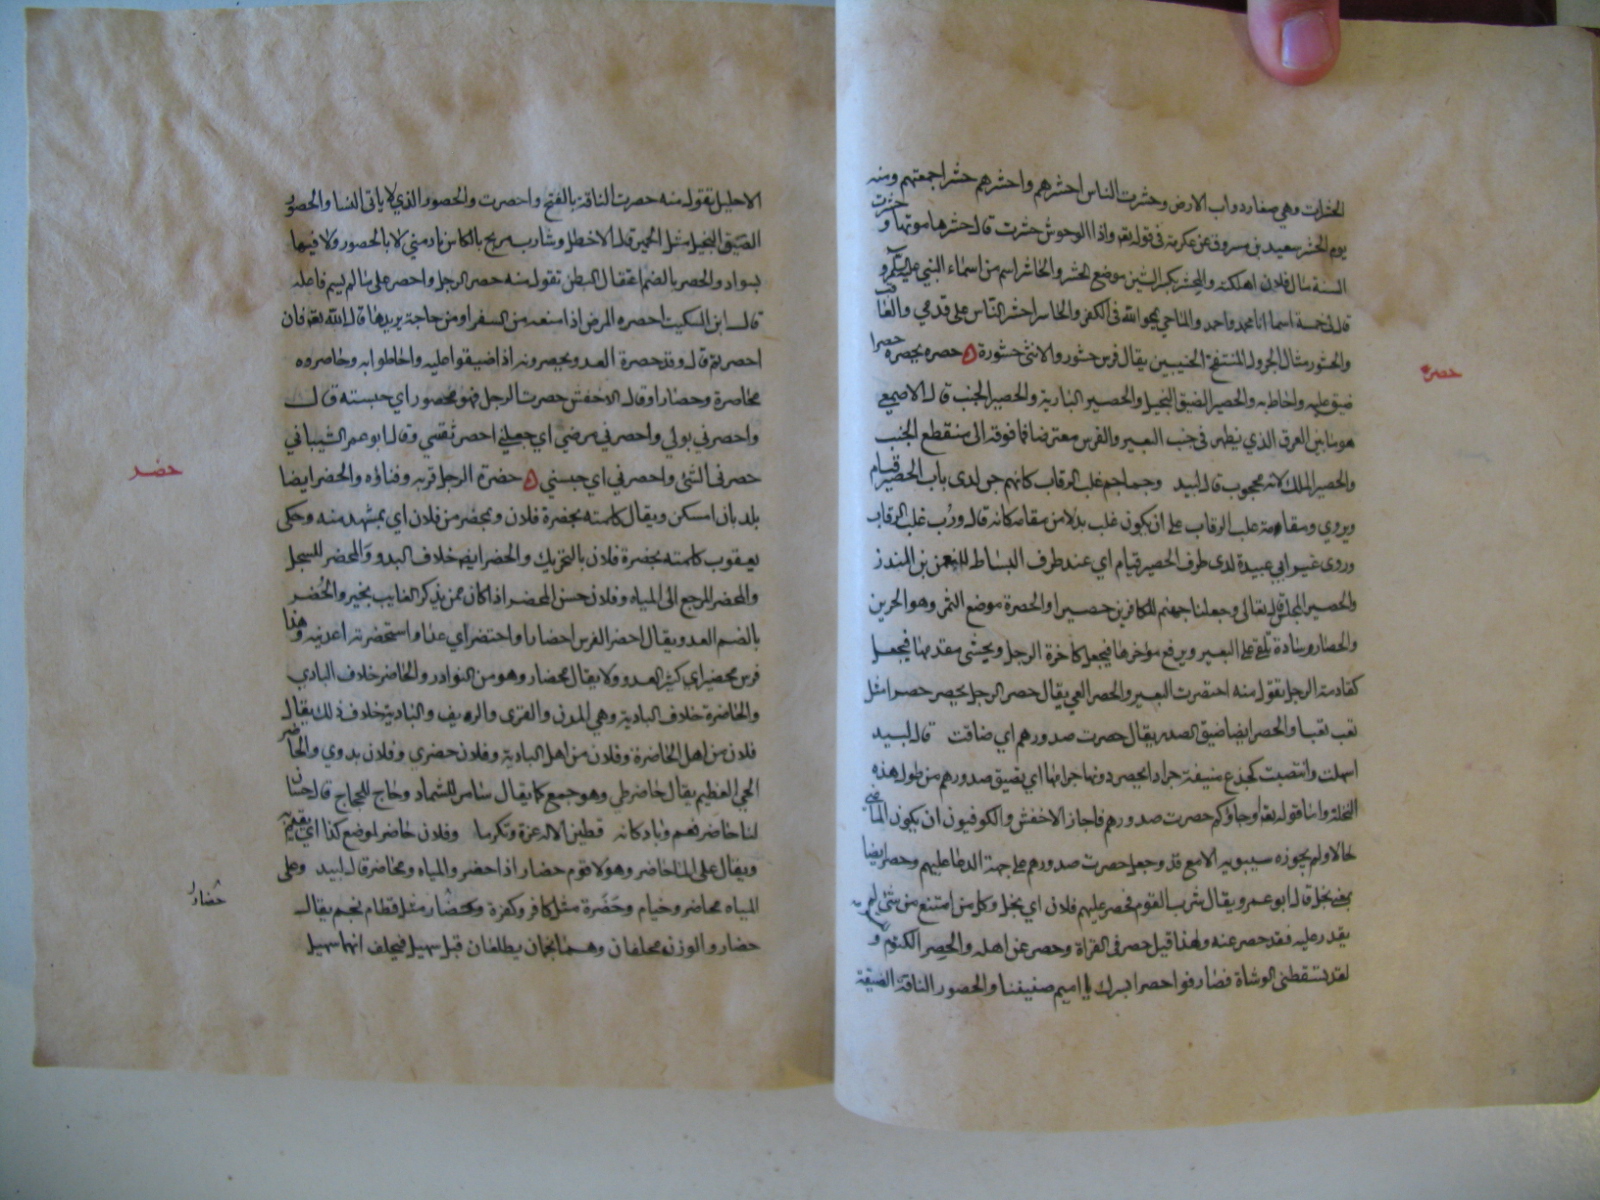 الحشرات وهي صغار دواب الارض وحشرت الناس احشرهم واحشرهم حشرا جمعتهم ومنه
يوم الحشر سعيد بن مسروق عن عكرمة في قوله تعـ واذا الوحوش حشرت قال حشرها موتها و
حشرت
السنة مال فلان اهلكته والمحشر بكسر الشين موضع الحشر والحاشر اسم من اسماء النبي عليه السلم و
قال لى خمسة اسما انا محمد واحمد والماحي يمحو الله في الكفر والحاشر احشر الناس على قدمي والعا
قب
والحشور مثال الجرول المنتفخ الجنبين يقال فرس حشور والانثى حشورة حصره يحصره
حصرا
حصره
ضيق عليه واحاط به والحصير الضيق البخيل والحصير البارية والحصير الجنب قال الاصمعي
هو ما بين العرق الذي يظهر في جنب البعير والفرس معترضا فما فوقه الى منقطع الجنب
والحصير الملك لانه محجوب قال لبيد وجماجم غلب الرقاب كانهم جن لدى باب الحصير قيام
ويروى ومقامة غلب الرقاب على ان يكون غلب بدلا من مقامة كانه قال ورب غلب الرقاب
وروى غير ابي عبيدة لدى طرف الحصير قيام اي عند طرف البساط للنعمن بن المنذر
والحصير المجلس قال تعالى وجعلنا جهنم للكافرين حصيرا والحصرة موضع التمر وهو الجرين
والحصار وسادة تلقى على البعير ويرفع مؤاخرها فيجعل كاخرة الرجل ويحشى مقدمها فيجعل
كقادمة الرجل تقول منه احتصرت البعير والحصر العي يقال حصر الرجل يحصر حصرا مثل
تعب تعبا والحصر ايضا ضيق الصدر يقال حصرت صدورهم اي ضاقت قال لبيد
اسهلت وانتصبت كجذع منيفة جرداء يحصر دونها جرامها اي يضيق صدورهم من طول هذه
النخلة واما قوله تعـ اوجاؤكم حصرت صدورهم فاجاز الاخفش والكوفيون ان يكون الما
ضي
حالا ولم يجوزه سيبويه الا مع قد وجعل حصرت صدورهم على جهة الدعا عليهم وحصر ايضا
بمعنى بخل قال ابو عمرو يقال شرب القوم فحصر عليهم فلان اي بخل وكل من امتنع من شئ لم
يقدر عليه فقد حصر عنه ولهذا قيل حصر في القراة وحصر عن اهله والحصر الكتوم و
لقد تسقطني الوشاة فصادفوا حصرا بسرك يا اميم ضنينا والحصور الناقة الضيقة
الاحليل تقول منه حصرت الناقة بالفتح واحصرت والحصور الذي لا ياتى النسا والحصور
الضيق البخيل مثل الحصير قال الاخطل وشارب مربح بالكاس نادمني لا بالحصور ولا فيها
بسوار والحصر بالضم اعتقال البطن تقول منه حصر الرجل واحصر على ما لم يسم فاعله
قال ابن السكيت احصره المرض اذا منعه من السفر او من حاجة يريدها قال الله تعـ فان
احصرتم قال وقد حصرة العدو يحصرونه اذا ضيقوا عليه واحاطوا به وحاصروه
محاصرة وحصارا وقال الاخفش حصرت الرجل فهو محصور اي حبسته قال
واحصرني بولي واحصرني مرضي اي جعلني احصر نفسي وقال ابو عمر الشيباني
حصرنى الشئ واحصرني اي حبسني حضرة الرجل قربه وفناؤه والحضر ايضا
حضر
بلد بازا مسكن ويقال كلمته بحضرة فلان وبمحضر من فلان اي بمشهد منه وحكى
يعقوب كلمته بحضرة فلان بالتحريك والحضر ايضـ خلاف البدو والمحضر للسجل
والمحضر المرجع الى المياه وفلان حسن المحضر اذا كان ممن يذكر الغايب بخير والحضر
بالضم العدو يقال احضر الفرس احضارا واحتضر اي عدا واستحضرته اعديته وهذا
فرس محضير اي كثير العدو ولا يقال محضار وهو من النوادر والحاضر خلاف البادي
والحاضرة خلاف البادية وهي المدن والقرى والريف والبادية خلاف ذلك يقال
فلان من اهل الحاضرة وفلان من اهل البادية وفلان حضري وفلان بدوي والحا
ضر
الحي العظيم يقال حاضر طي وهو جمع كما يقال سامر للسمار وحاج للحجاج قال حسان
لنا حاضر فعم وباد كانه قطين الاله عزة وتكرما وفلان حاضر لموضع كذا اي مقيم
به
ويقال على الماء حاضر وهؤلا قوم حضار اذا حضروا المياه ومحاضر قال لبيد وعلى
المياه محاضر وخيام وحضرة مثل كافر وكفرة وحضار مثل قطام نجم يقال
حضار
حضار والوزن محلفان وهما نجمان يطلعان قبل سهيل فيحلف انهما سهيل